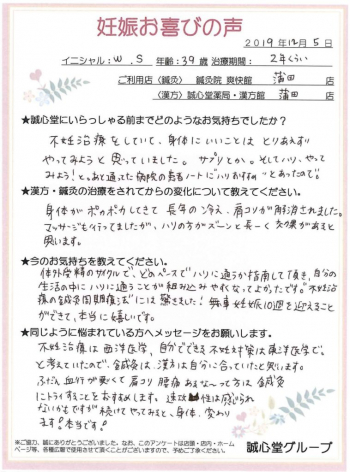 妊娠お喜びの声
2019年12月5日
イニシャル:W.S 年齢:39歳 治療期間:2年くらい
ご利用店〈鍼灸〉 鍼灸院 爽快館 蒲田 店
〈漢方〉誠心堂薬局・漢方館 蒲田 店
★誠心堂にいらっしゃる前までどのようなお気持ちでしたか?
不妊治療をしていて、身体にいいことは とりあえず
やってみようと思っていました。サプリとか。そしてハリ、やって
みよう!と。あと通ってた病院の患者ノートに"ハリおすすめ"とあったので。
★漢方・鍼灸の治療をされてからの変化について教えてください。
身体がポカポカしてきて 長年の冷え、肩コリが解消されました。
マッサージも行ってましたが、ハリの方がズーンと長ーく効果があると
思います。
★今のお気持ちを教えてください。
体外受精のサイクルで、どのペースでハリに通うか指南して頂き、自分の
生活の中にハリに通うことが組み込みやすくなってよかったです。"不妊治
療の鍼灸周期療法"には驚きました! 無事妊娠10週を迎えることが
できて、本当に嬉しいです。
★同じように悩まれている方へメッセージをお願いします。
不妊治療は西洋医学、自分でできる不妊対策は東洋医学で。
と考えていたので、鍼灸は、漢方は自分に合っていたと思います。
ふだん血行が悪くて 肩コリ 腰痛 あるなって方は 鍼灸
にトライすることをおすすめします。速効性は
ないかもですが 続けてやってみると、身体、変わり
ます!本当です!
※ご協力、誠にありがとうございました。なお、このアンケートは店頭・店内・ホーム
ページ等、各種広報で使用させて頂くことがございますので、予めご了承ください。
誠心堂グループ